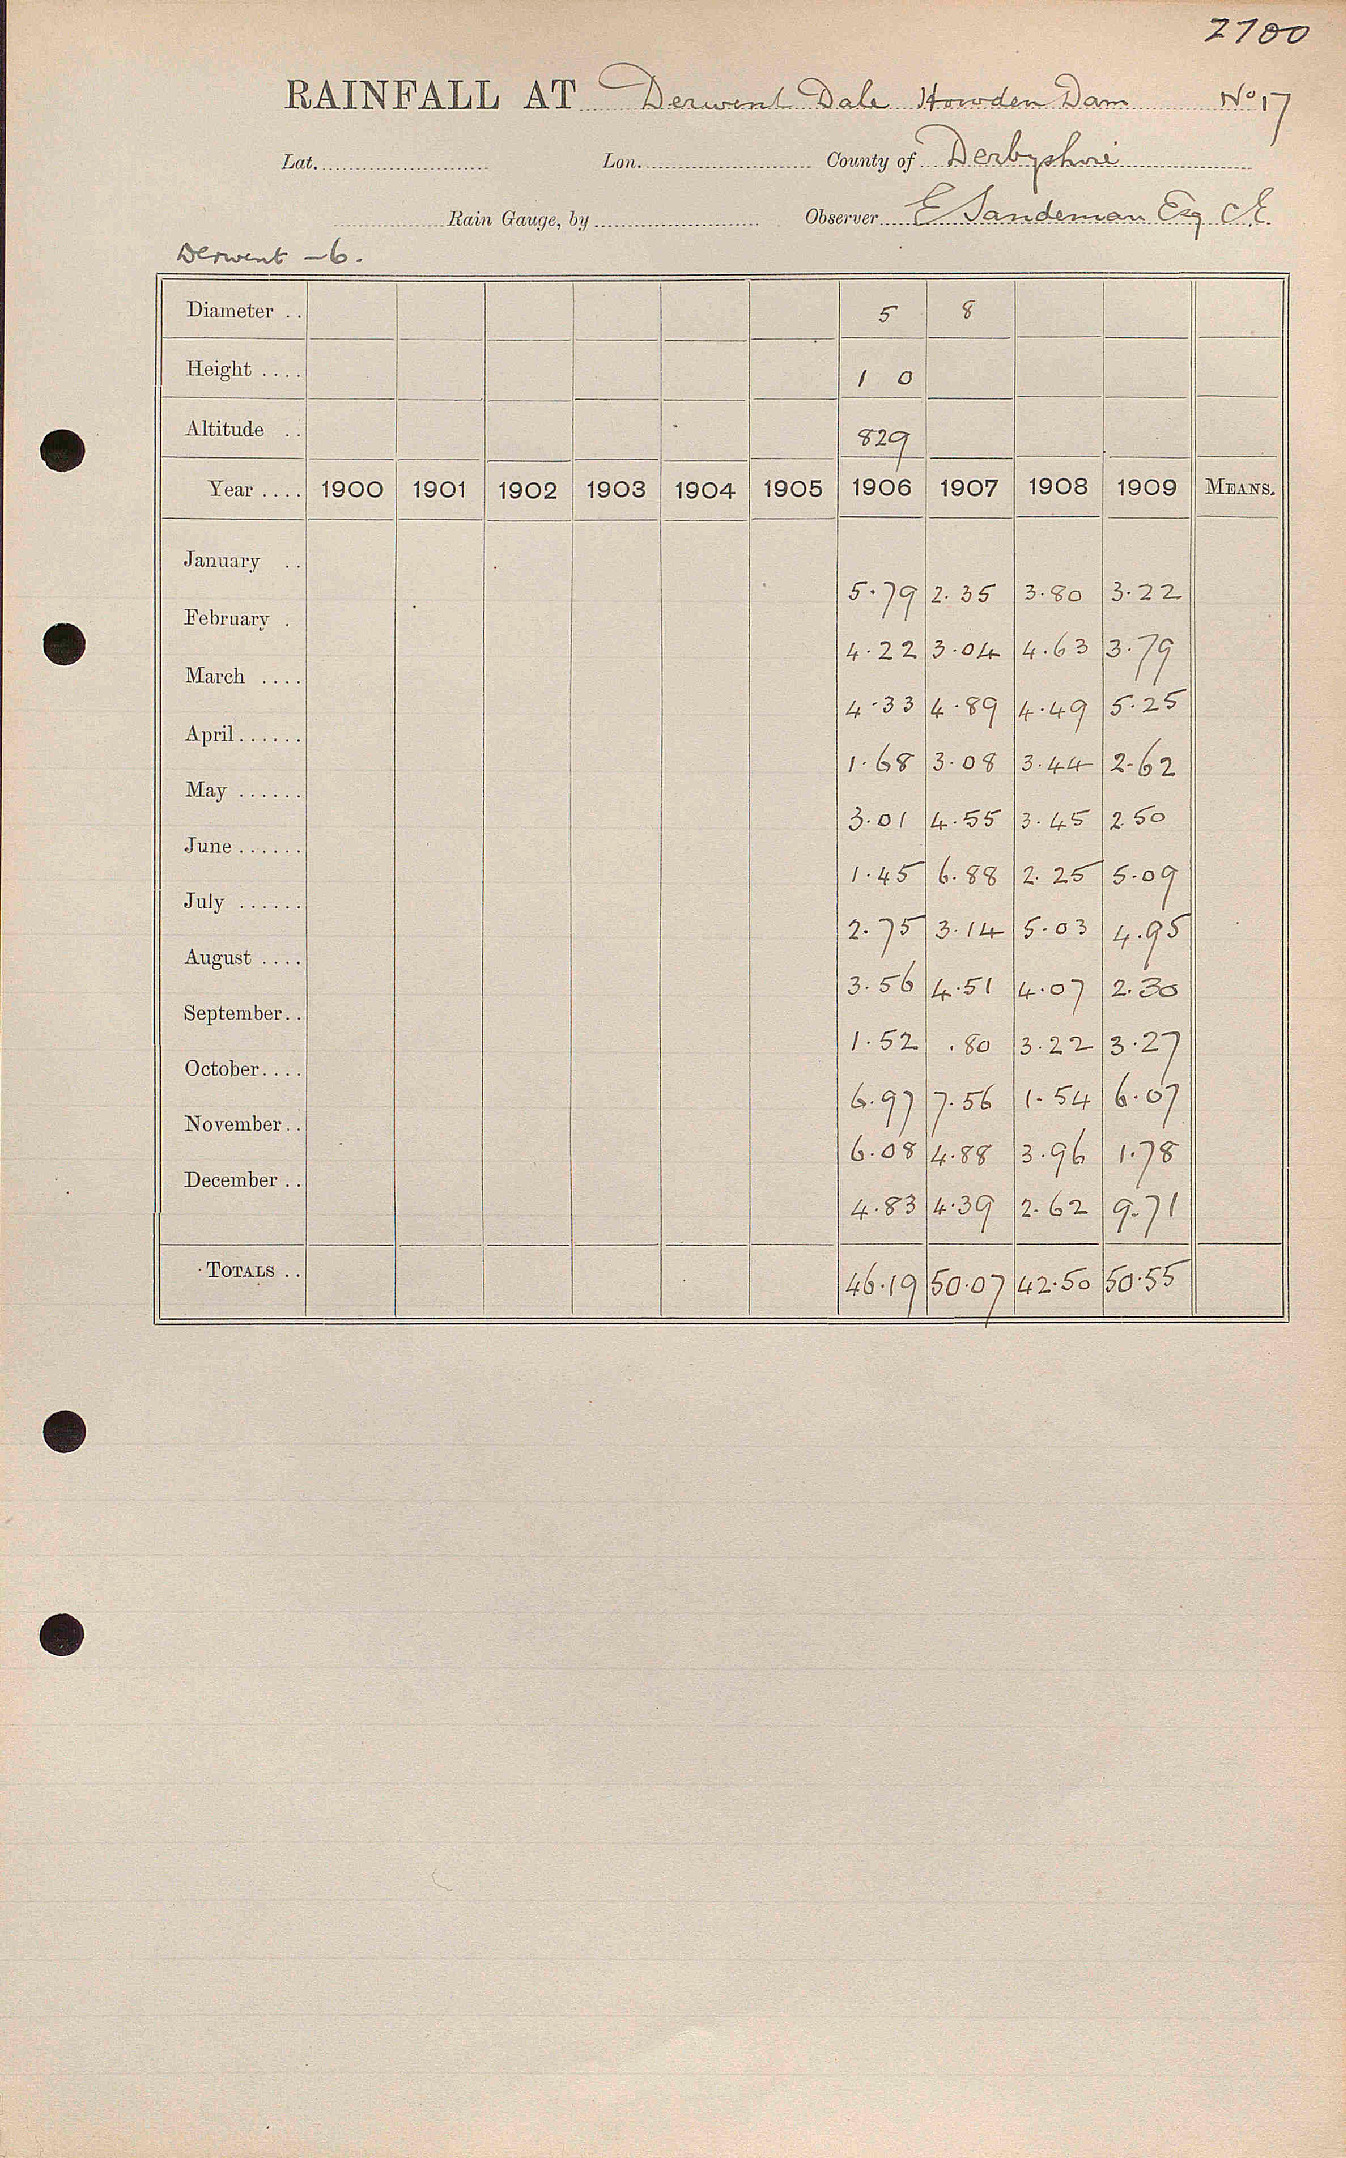 2700
RAINFALL AT Derwent Dale Howden Dam No 17
Lat. Lon. County of Derbyshire
Rain Gauge, by Observer E Sandeman Esq C.E.
Derwent - 6.
Diameter .. 5 8
Height .... 1 0
Altitude .. 829
Year .... 1900 1901 1902 1903 1904 1905 1906 1907 1908 1909 MEANS.
January .. 5.79 2.35 3.80 3.22
February . 4.22 3.04 4.63 3.79
March .... 4.33 4.89 4.49 5.25
April ...... 1.68 3.08 3.44 2.62
May ...... 3.01 4.55 3.45 2.50
June ...... 1.45 6.88 2.25 5.09
July ...... 2.75 3.14 5.03 4.95
August .... 3.56 4.51 4.07 2.30
September.. 1.52 .80 3.22 3.27
October.... 6.97 7.56 1.54 6.07
November.. 6.08 4.88 3.96 1.78
December .. 4.83 4.39 2.62 9.71
TOTALS .. 46.19 50.07 42.50 50.55